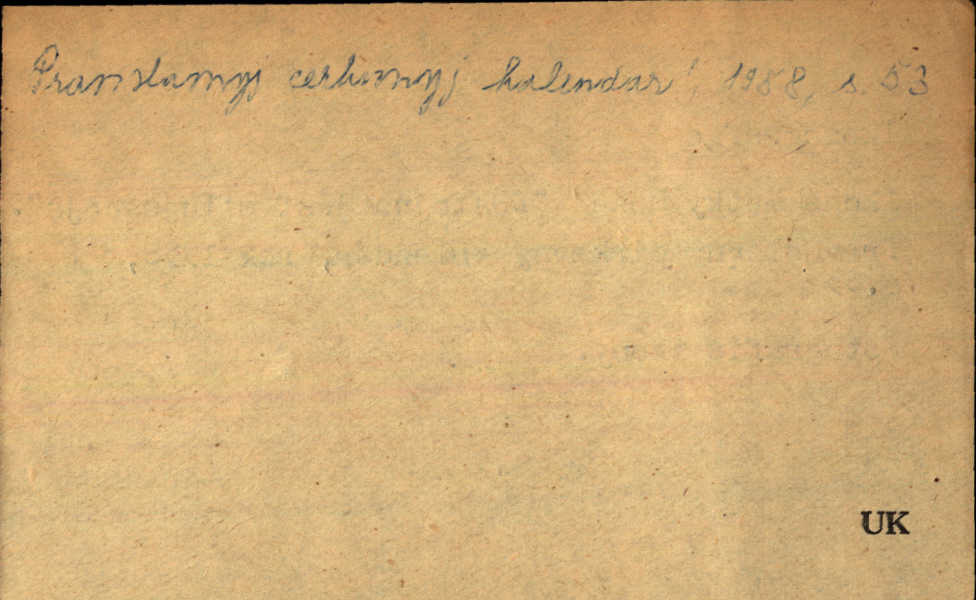 Pravoslavnyj cerkovnyj kalendar' 1988, s. 53
UK